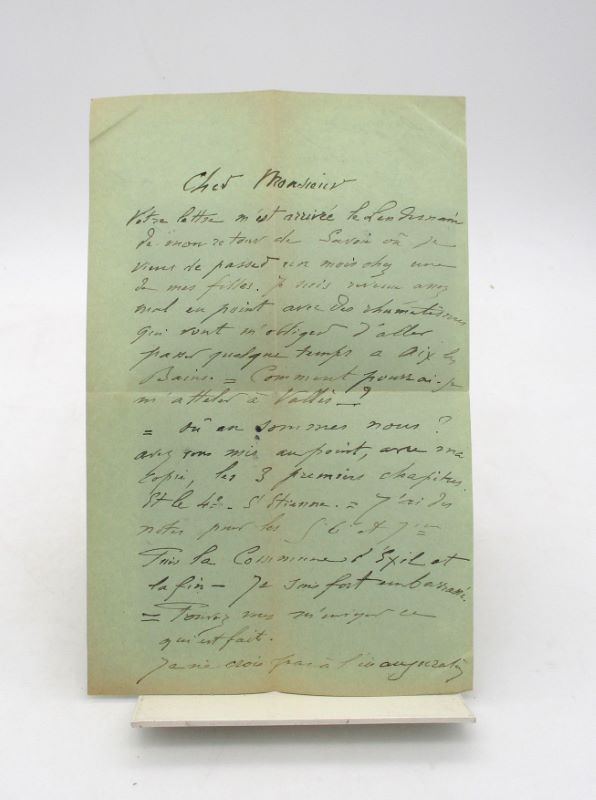 Cher Monsieur
Votre lettre m'est arrivée le lendemain
de mon retour de Savoie où je
viens de passer un mois chez une
de mes filles. Je suis revenu assez
mal en point avec des rhumatismes
qui vont m'obliger d'aller
passer quelque temps a Aix les
Bains. = Comment pourrai-je
m'atteler à Vallès — ?
= où en sommes nous ?
avez vous mis au point, avec ma
copie, les 3 premiers chapitres.
Et le 4e - St Etienne. = J'ai des
notes pour les § 6e et 7e
Puis la Commune d'Exil et
la fin — Je suis fort embarrassé.
= Pouvez vous m'envoyer ce
qui est fait.
Je ne crois pas à l'inauguration